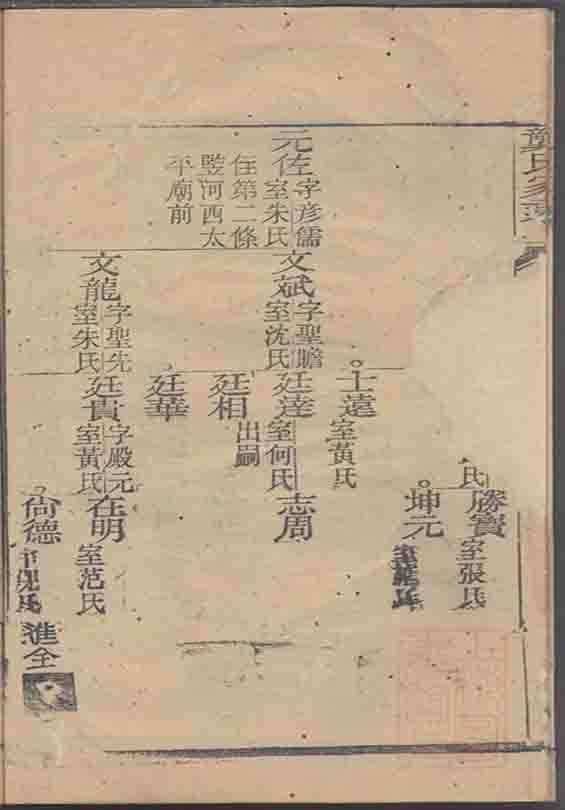 龔氏家譜
氏
勝寶
室張氏
坤元
士遠
室黃氏
元佐
字彥儒
室朱氏
住第二條
豎河西太
平廟前
文斌
字聖瞻
室沈氏
廷逹
室何氏
志周
廷相
出嗣
廷華
文龍
字聖先
室朱氏
廷貴
字殿元
室黃氏
在明
室范氏
尙德
進全